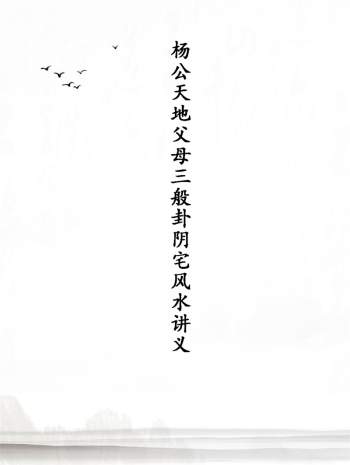 杨公天地父母三般卦阴宅风水讲义